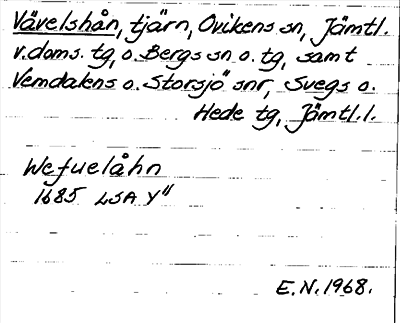 Vävelshån, tjärn, Ovikens sn, Jämtl.
v. doms. tg, o. Bergs sn o. tg, samt
Vemdalens o. Storsjö snr, Svegs o.
Hede tg, Jämtl. l.
Wefuelåhn
1685 LSA Y"
E.N. 1968.